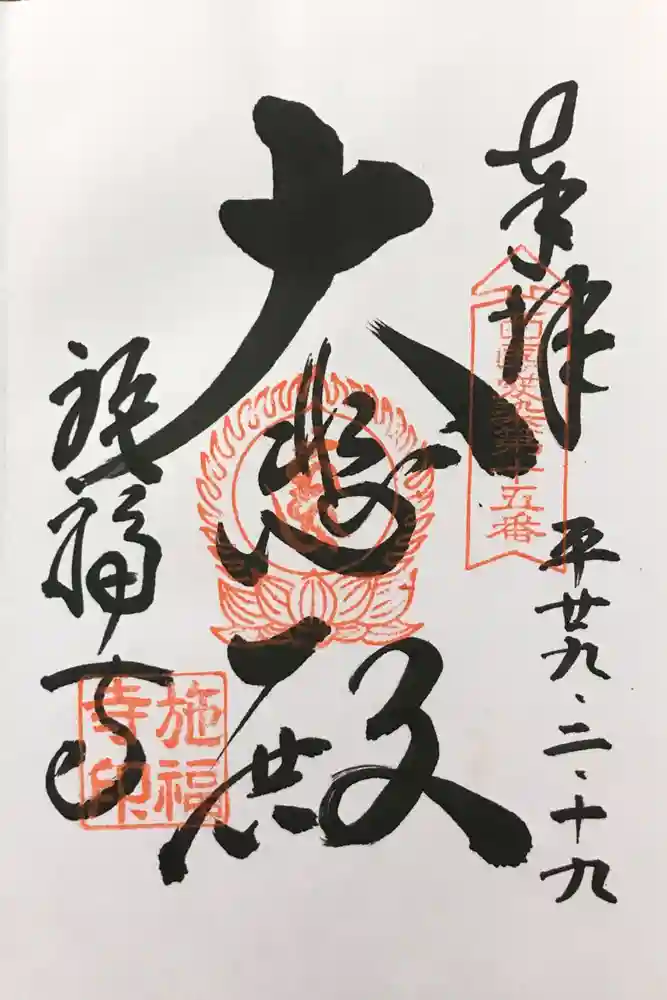 奉拝
第十五番
平廿九・二・十九
大悲殿
施福寺
施福
寺印